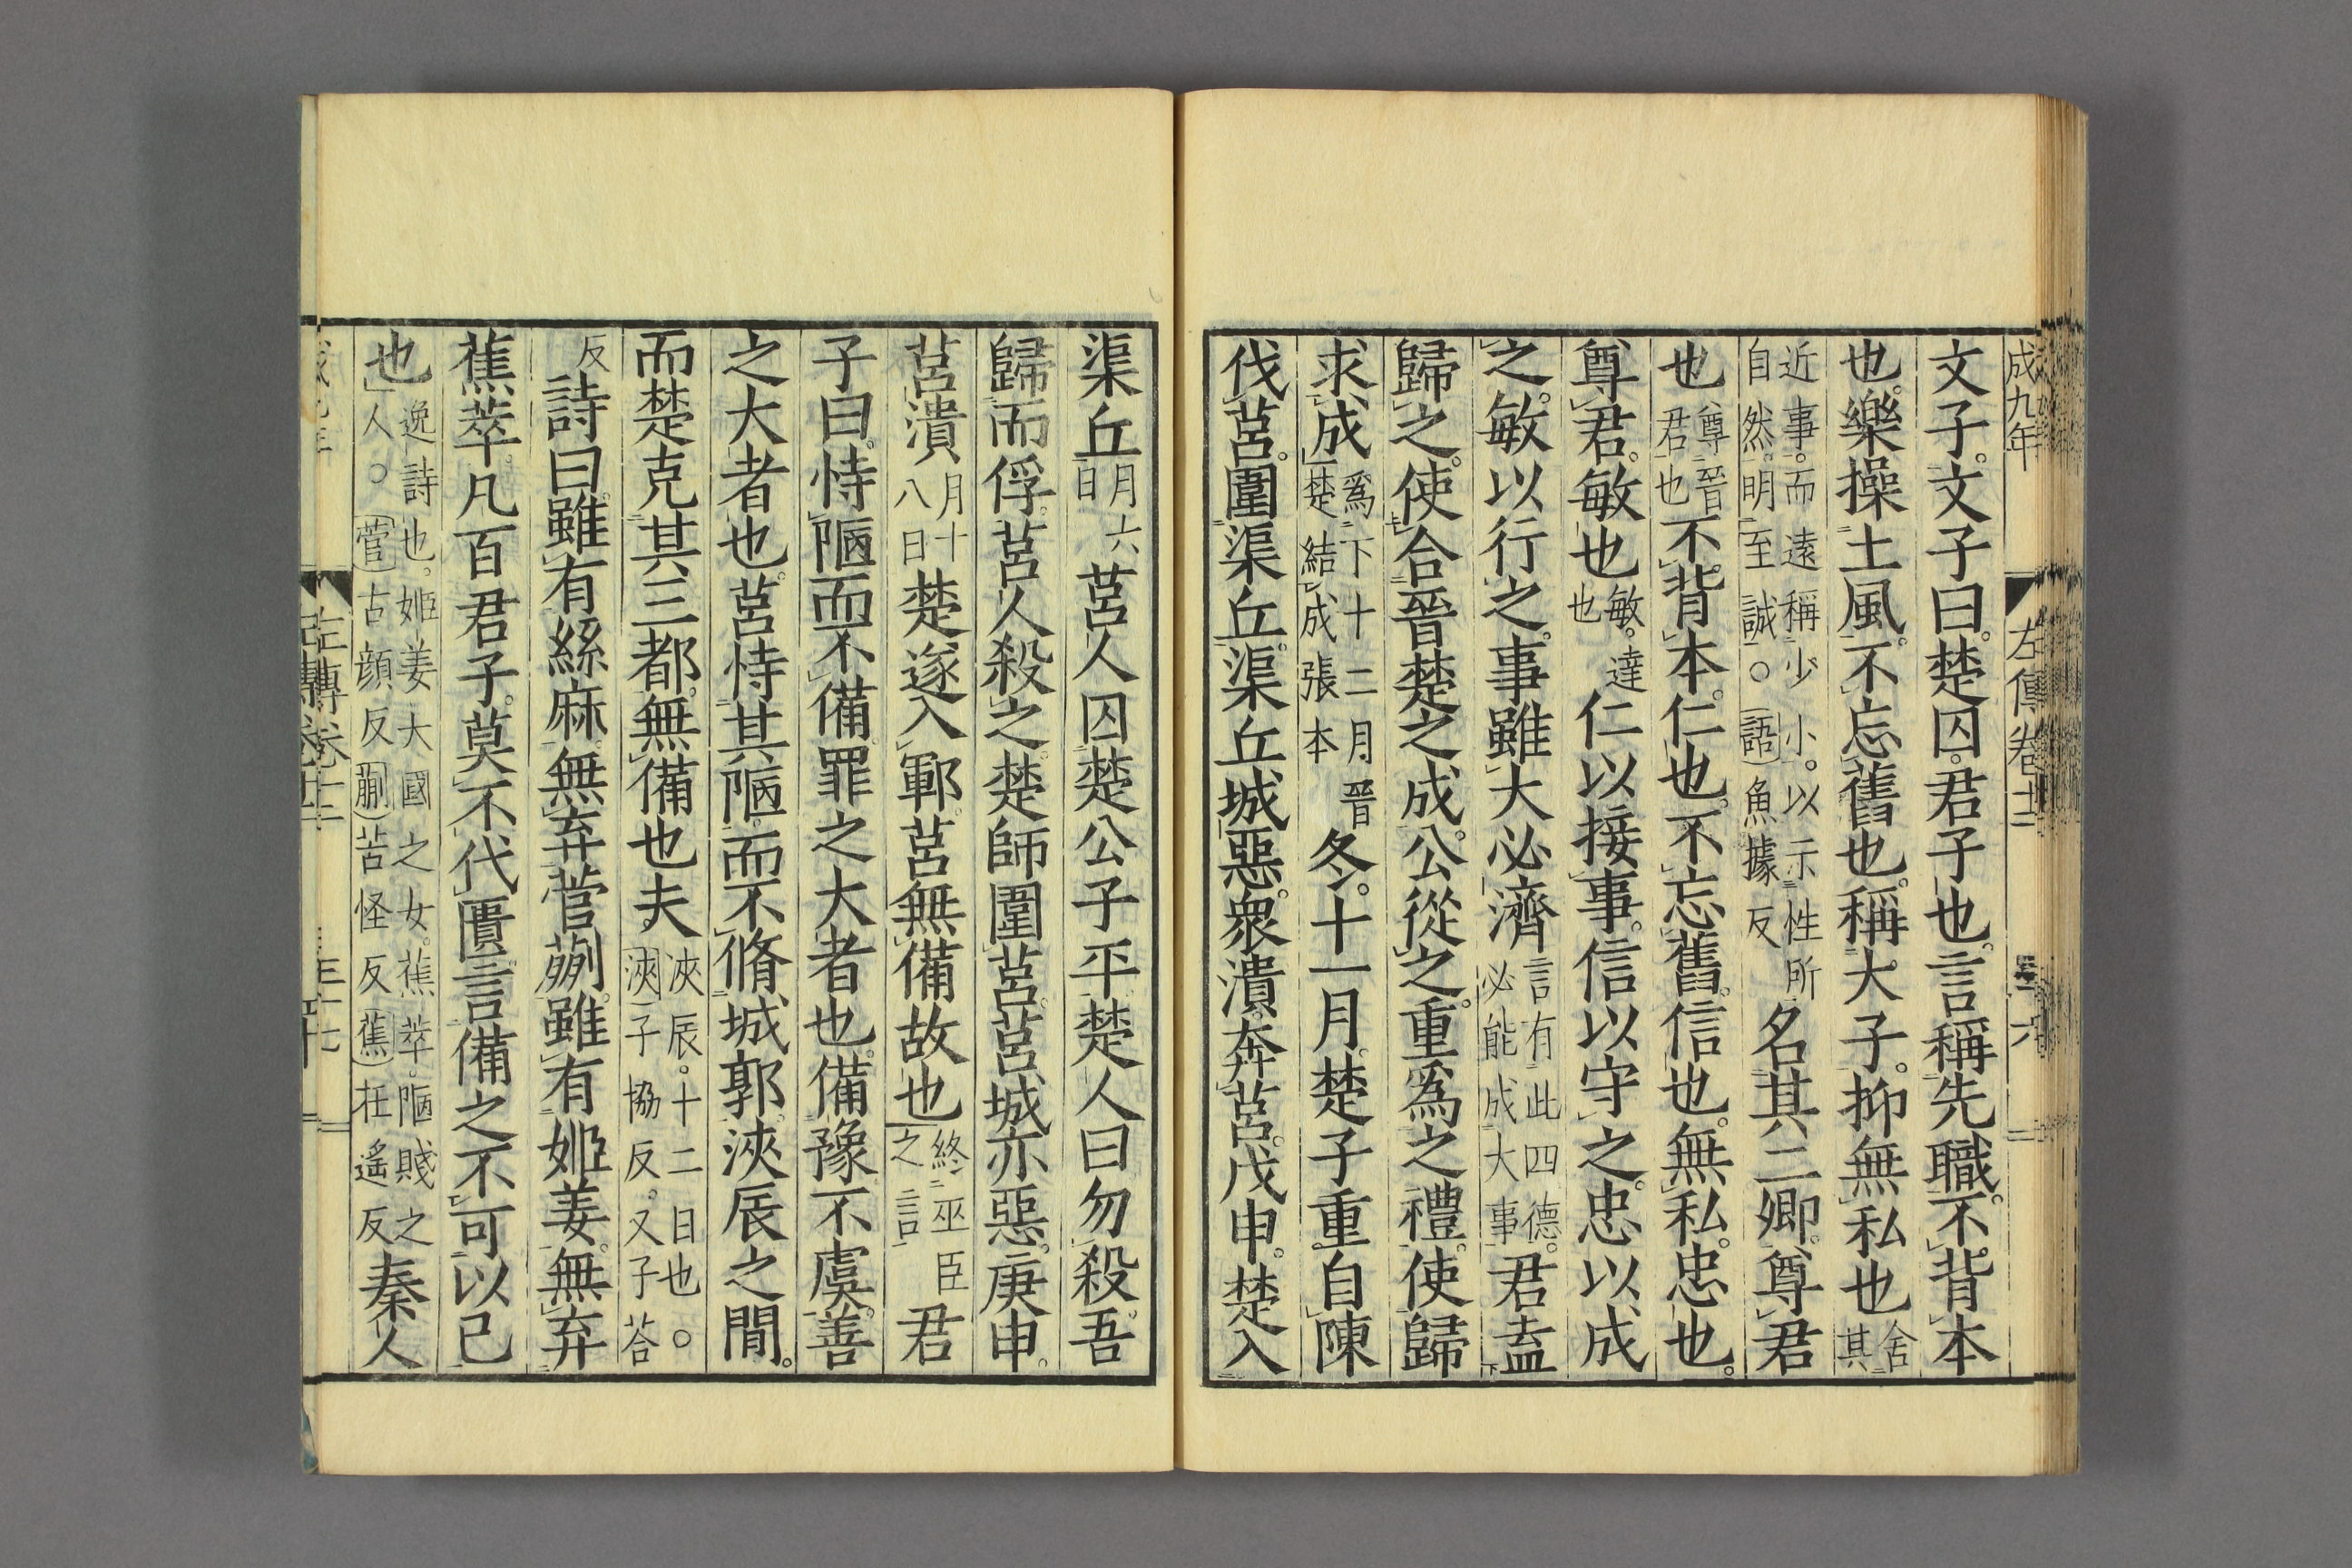 成九年
左傳卷十二
文子文子曰楚囚君子也言稱先職不背本
也樂操土風不忘舊也稱大子抑無私也舍其
近事而遠稱少小以示性所自然明至誠○語魚據反名其二卿尊君
也尊晉君也不背本仁也不忘舊信也無私忠也
尊君敏也敏達也仁以接事信以守之忠以成
之敏以行之事雖大必濟言有此四德必能成大事君盍
歸之使合晉楚之成公從之重爲之禮使歸
求成爲下十二月晉楚結成張本冬十一月楚子重自陳
伐莒圍渠丘渠丘城惡衆潰奔莒戊申楚入
渠丘月六日莒人囚楚公子平楚人曰勿殺吾
歸而俘莒人殺之楚師圍莒莒城亦惡庚申
莒潰月十八日楚遂入鄆莒無備故也終巫臣之言君
子曰恃陋而不備罪之大者也備豫不虞善
之大者也莒恃其陋而不脩城郭浹辰之間
而楚克其三都無備也夫浹辰十二日也○浹子協反又子荅
反詩曰雖有絲麻無弃菅蒯雖有姬姜無弃
蕉萃凡百君子莫不代匱言備之不可以已
也逸詩也姬姜大國之女蕉萃陋賤之人○菅古顔反蒯苦怪反蕉在遙反秦人